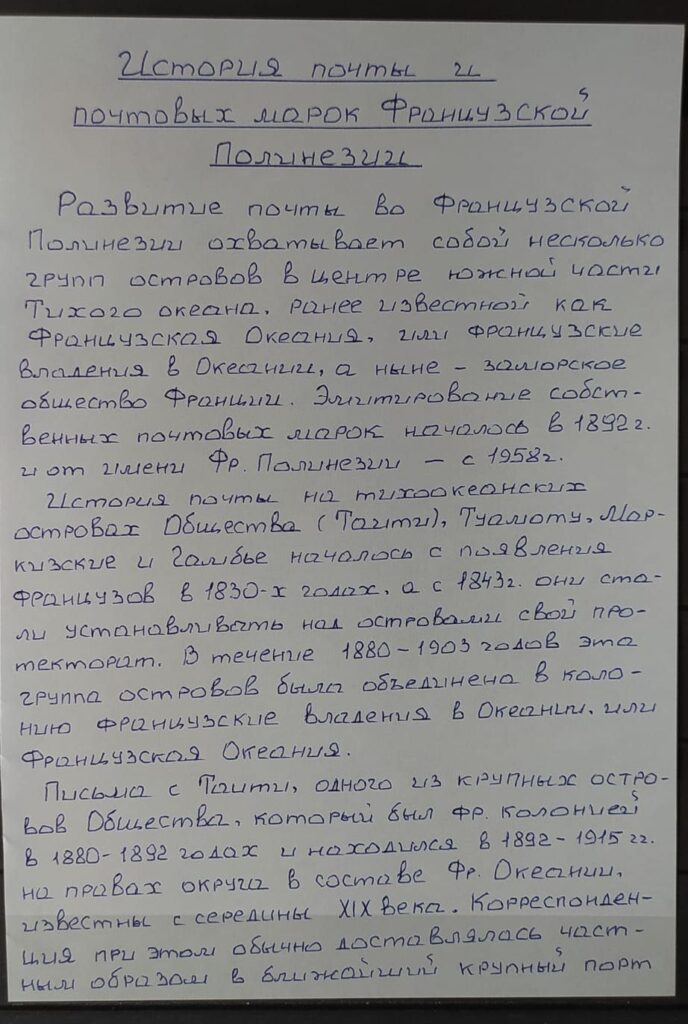 История почты и
почтовых марок Французской
Полинезии
Развитие почты во Французской
Полинезии охватывает собой несколько
групп островов в центре южной части
Тихого океана, ранее известной как
Французская Океания, или французские
владения в Океании, а ныне – заморское
общество Франции. Эмитирование собст-
венных почтовых марок началось в 1892 г.
и от имени Фр. Полинезии – с 1958 г.
История почты на тихоокеанских
островах Общества (Таити), Туамоту, Мар-
кизские и Гамбье началось с появления
французов в 1830-х годах, а с 1843 г. они ста-
ли устанавливать над островами свой про-
текторат. В течение 1880–1903 годов эта
группа островов была объединена в коло-
нию французские владения в Океании, или
Французская Океания.
Письма с Таити, одного из крупных остро-
вов Общества, который был фр. колонией
в 1880–1892 годах и находился в 1892–1915 гг.
на правах округа в составе Фр. Океании,
известны с середины XIX века. Корреспонден-
ция при этом обычно доставлялась част-
ным образом в ближайший крупный порт